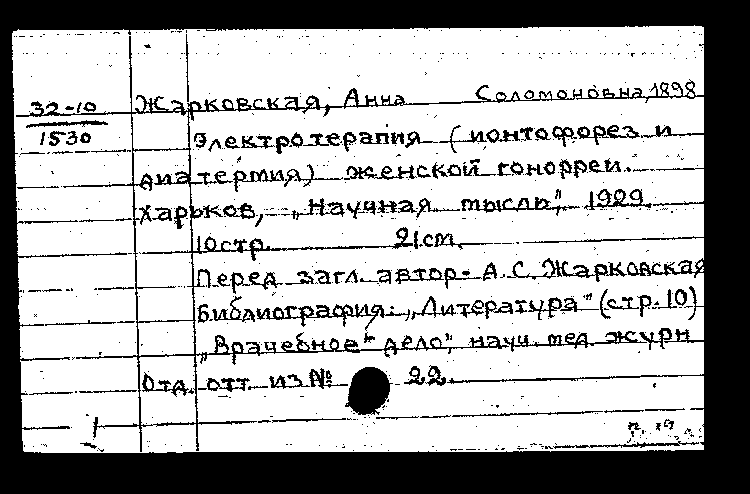 32-10 Жарковская, Анна Соломоновна, 1898
1530 Электротерапия (ионтофорез и
диатермия) женской гонорреи.
Харьков, „Научная мысль", 1929.
10 стр. 21 см.
Перед загл. автор- А.С. Жарковская
Библиография: „Литература" (стр. 10)
„Врачебное дело", науч. мед. журн
Отд. отт. из № 22.
1